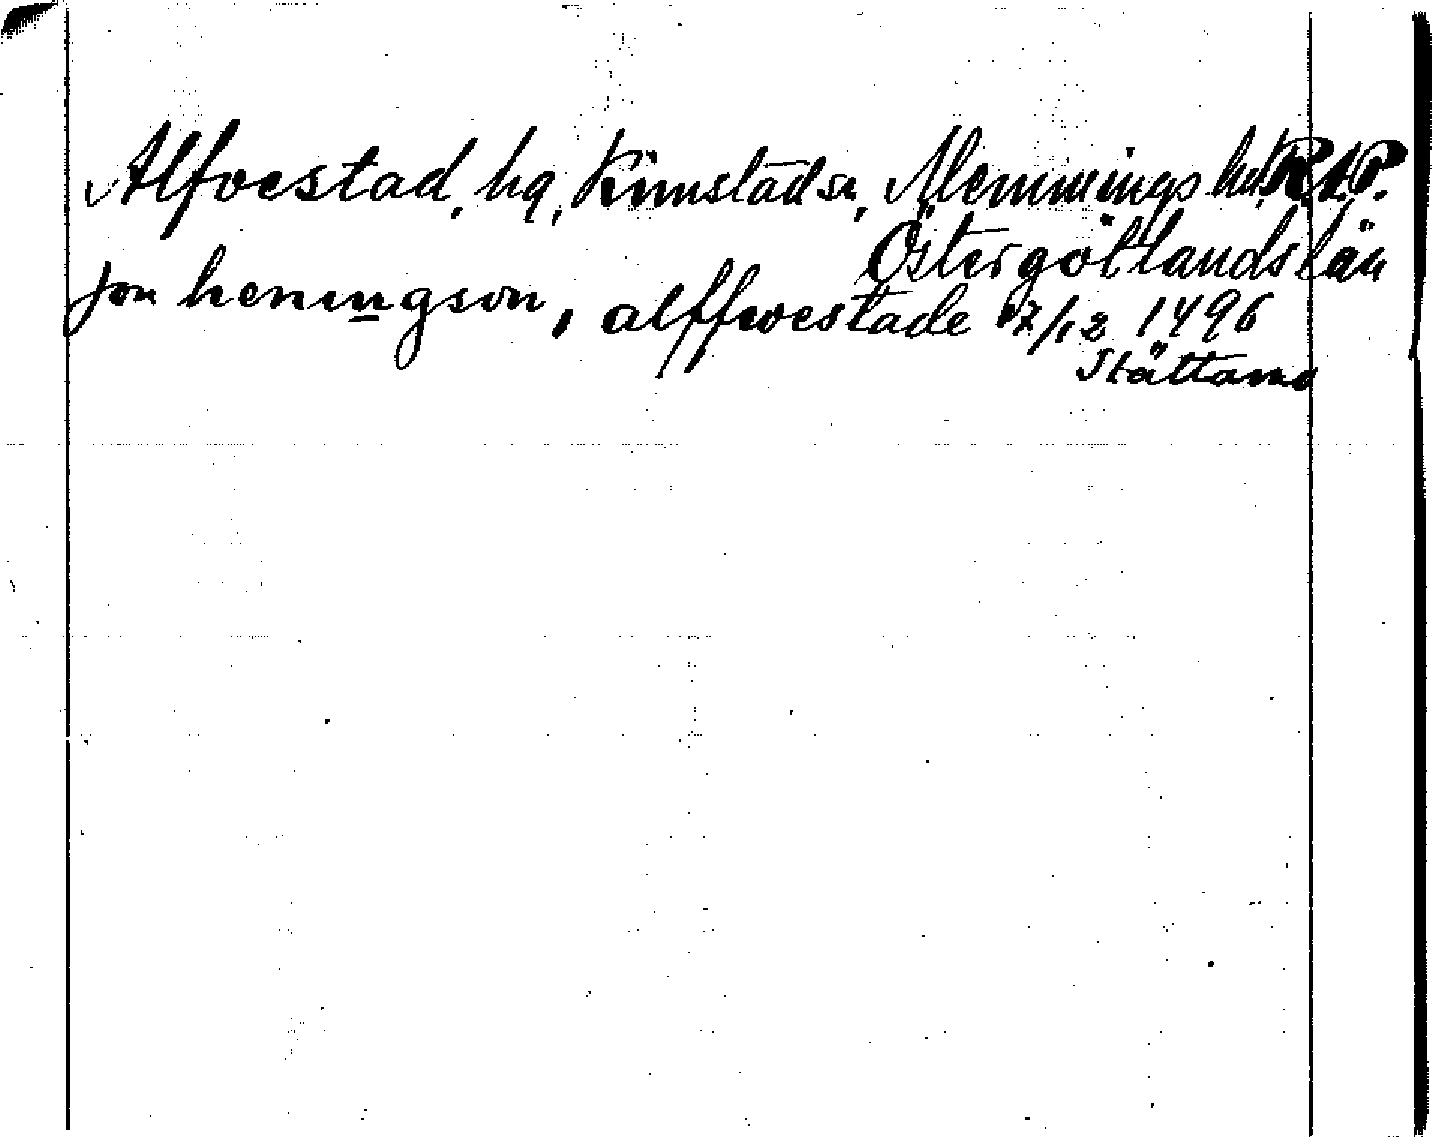 Alfvestad, hg, Kimstad sn, Memmings hd. R.A.P.
Östergötlands län
jon heningson, alffwestade 17/12 1496
Stättand